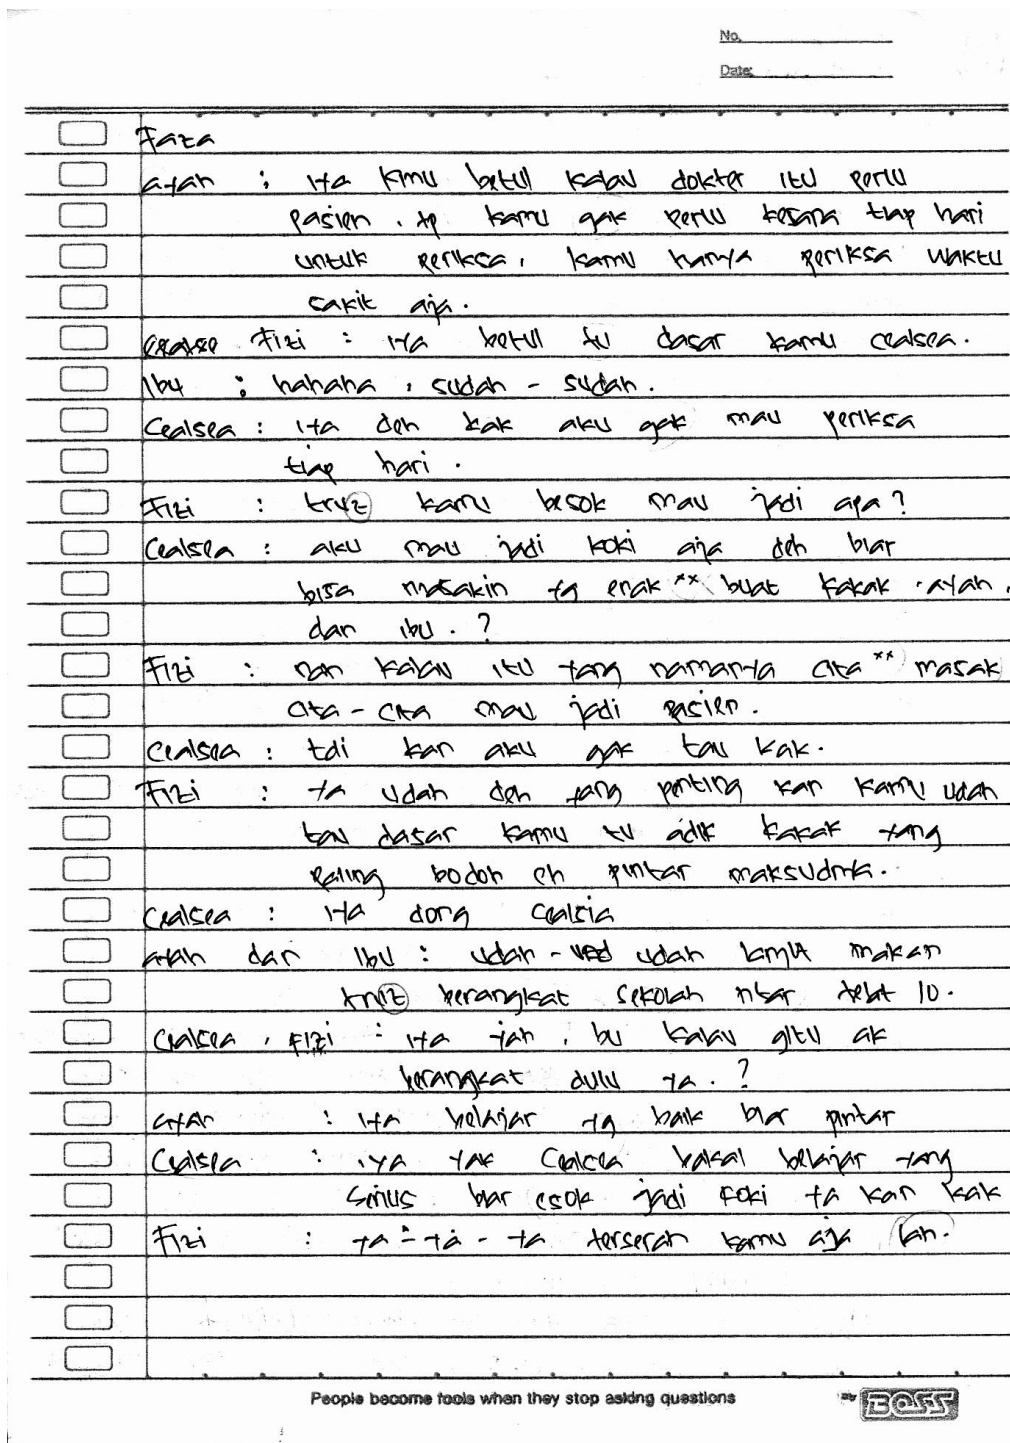 No.
Date:
Faza
ayah : iya kmu betul kalau dokter itu perlu
pasien. tp kamu gak perlu kesana tiap hari
untuk periksa, kamu hanya periksa waktu
sakit aja.
Fizi : iya betul tu dasar kamu cealsea.
Ibu : hahaha, sudah - sudah.
Cealsea : iya deh kak aku gak mau periksa
tiap hari.
Fizi : truz kamu besok mau jadi apa?
Cealsea : aku mau jadi koki aja deh biar
bisa masakin yg enak xx buat kakak, ayah,
dan ibu. ?
Fizi : nah kalau itu yang namanya cita xx masak
cita - cita mau jadi pasien.
Cealsea : tdi kan aku gak tau kak.
Fizi : ya udah deh yang penting kan kamu udah
tau dasar kamu tu adik kakak yang
paling bodoh eh pintar maksudnya.
Cealsea : iya dong cealsia
ayah dan Ibu : udah - udah makan
truz berangkat sekolah ntar telat 10.
Cealsea, Fizi : iya yah, bu kalau gitu ak
berangkat dulu ya. ?
ayah : iya belajar yg baik biar pintar
Cealsea : iya yah Cealsea bakal belajar yang
serius biar esok jadi koki ya kan kak
Fizi : ya - ya - ya terserah kamu aja lah.
People become fools when they stop asking questions
BOSS